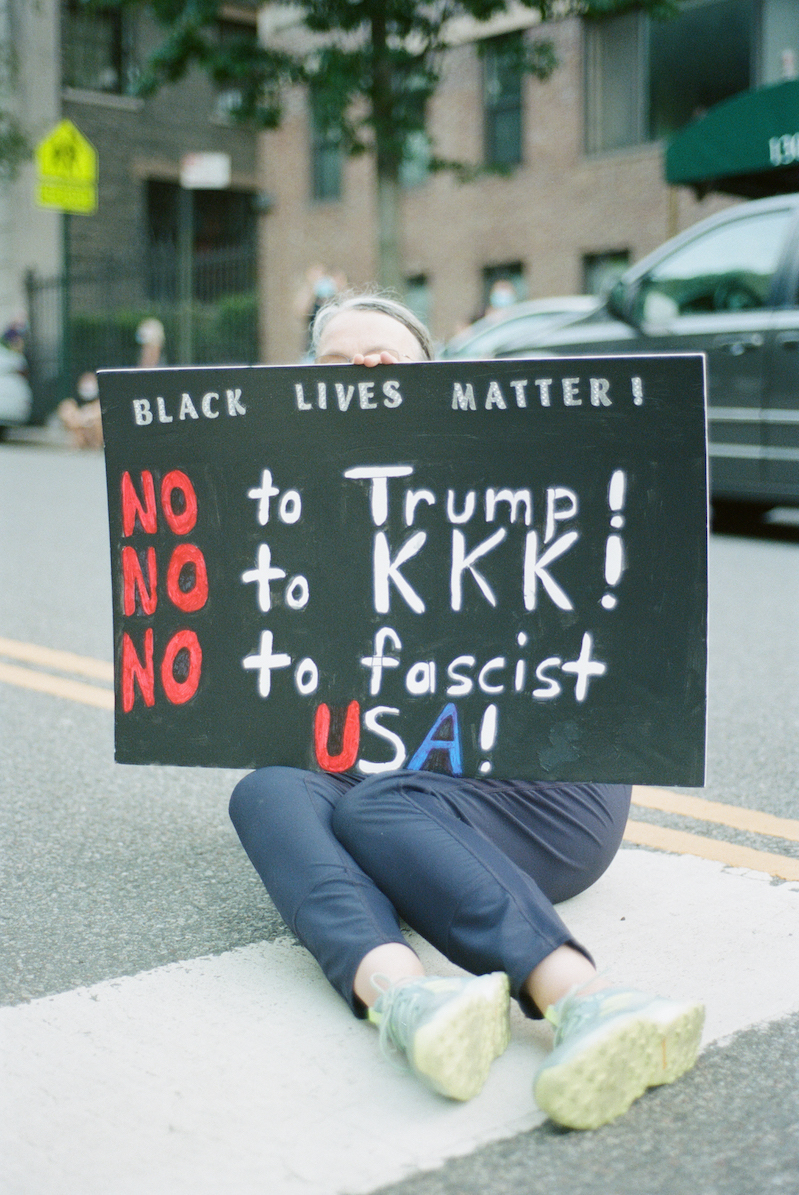 BLACK LIVES MATTER!
NO to Trump!
NO to KKK!
NO to fascist
USA!